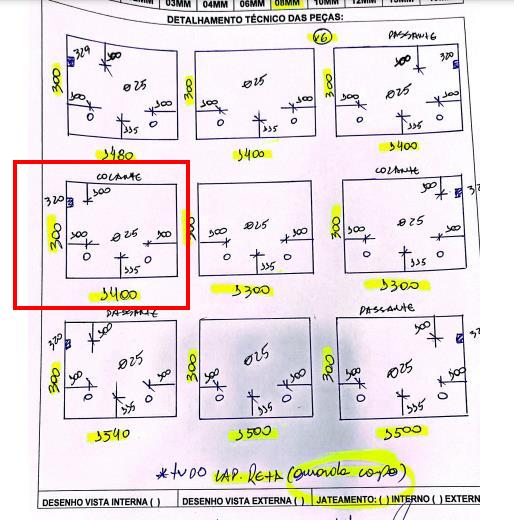 03MM 04MM 06MM 08MM 10MM 12MM
DETALHAMENTO TÉCNICO DAS PEÇAS:
V6 PASSANTE
329 300 300
300 Ø25 300 Ø25 300 Ø25
300 300 300 300 300 300
335 335 335
1480 1400 1400
COLANTE COLANTE
320 300 300
300 Ø25 300 Ø25 300 Ø25
300 300 300 300 300 300
335 335 335
1400 1300 1300
PASSANTE PASSANTE
320 300 300
300 Ø25 300 Ø25 300 Ø25
300 300 300 300 300 300
335 335 335
1540 1500 1500
*TUDO LAP. RETA (guarda copo)
DESENHO VISTA INTERNA ( ) DESENHO VISTA EXTERNA ( ) JATEAMENTO: ( ) INTERNO ( ) EXTERN